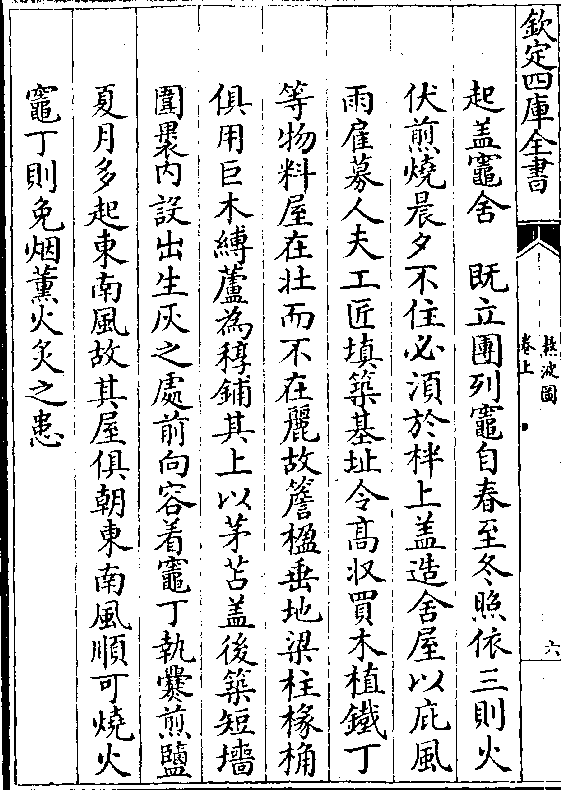 欽定四庫全書
熬波圖
卷上
六
起盖竈舍　既立團列竈自春至冬照依三則火
伏煎燒晨夕不住必須於柈上盖造舍屋以庇風
雨雇募人夫工匠填築基址令高収買木植鐵丁
等物料屋在壯而不在麗故簷楹垂地梁柱椽桷
俱用巨木縛蘆為稕鋪其上以茅苫盖後築短墻
圍褁内設出生灰之處前向容着竈丁執爨煎鹽
夏月多起東南風故其屋俱朝東南風順可燒火
竈丁則免烟薰火炙之患